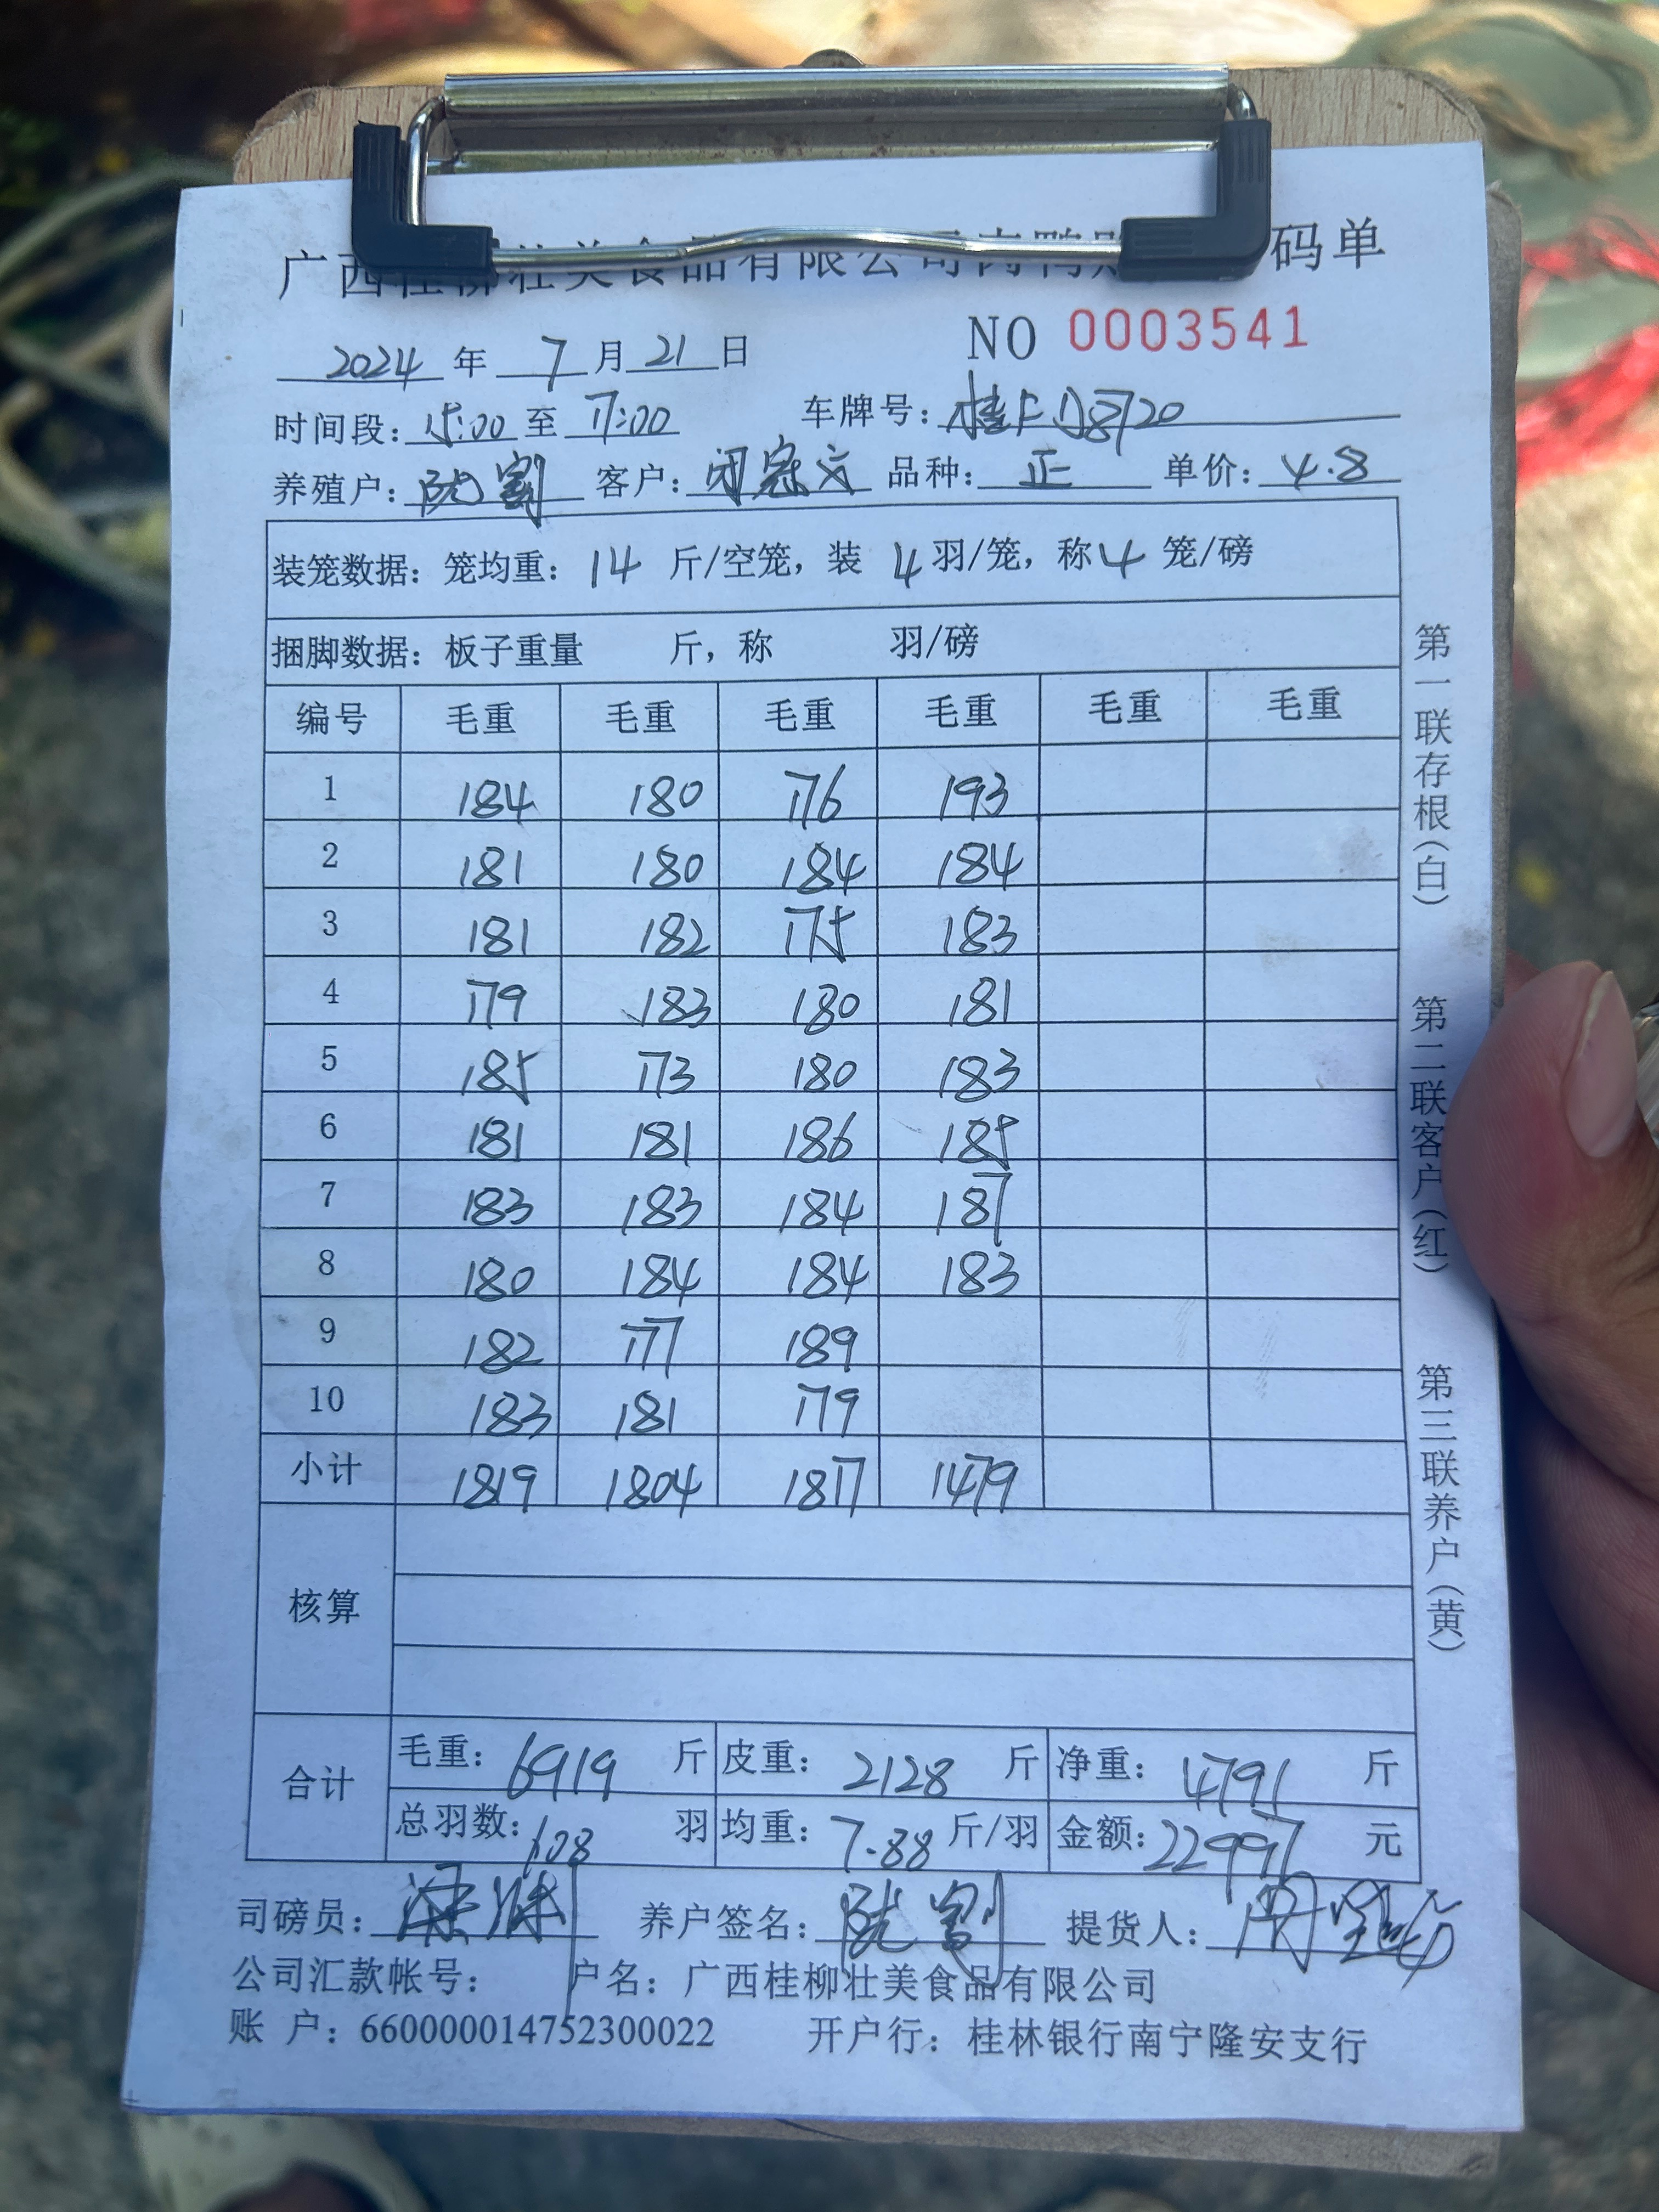 广西桂柳壮美食品有限公司肉鸭 码单
NO 0003541
2024 年 7 月 21 日
时间段: 15:00 至 17:00 车牌号: 桂 D8720
养殖户: 客户: 品种: 正 单价: 4.8
装笼数据: 笼均重: 14 斤/空笼, 装 4 羽/笼, 称 4 笼/磅
捆脚数据: 板子重量 斤, 称 羽/磅
编号 毛重 毛重 毛重 毛重 毛重 毛重
1 184 180 176 193
2 181 180 184 184
3 181 182 175 183
4 179 183 180 181
5 185 173 180 183
6 181 181 186 185
7 183 183 184 187
8 180 184 184 183
9 182 177 189
10 183 181 179
小计 1819 1804 1817 1479
核算
合计 毛重: 6919 斤 皮重: 2128 斤 净重: 4791 斤
总羽数: 608 羽 均重: 7.88 斤/羽 金额: 22997 元
司磅员: 养户签名: 提货人:
公司汇款帐号: 户名: 广西桂柳壮美食品有限公司
账 户: 660000014752300022 开户行: 桂林银行南宁隆安支行
第一联存根(白) 第二联客户(红) 第三联养户(黄)